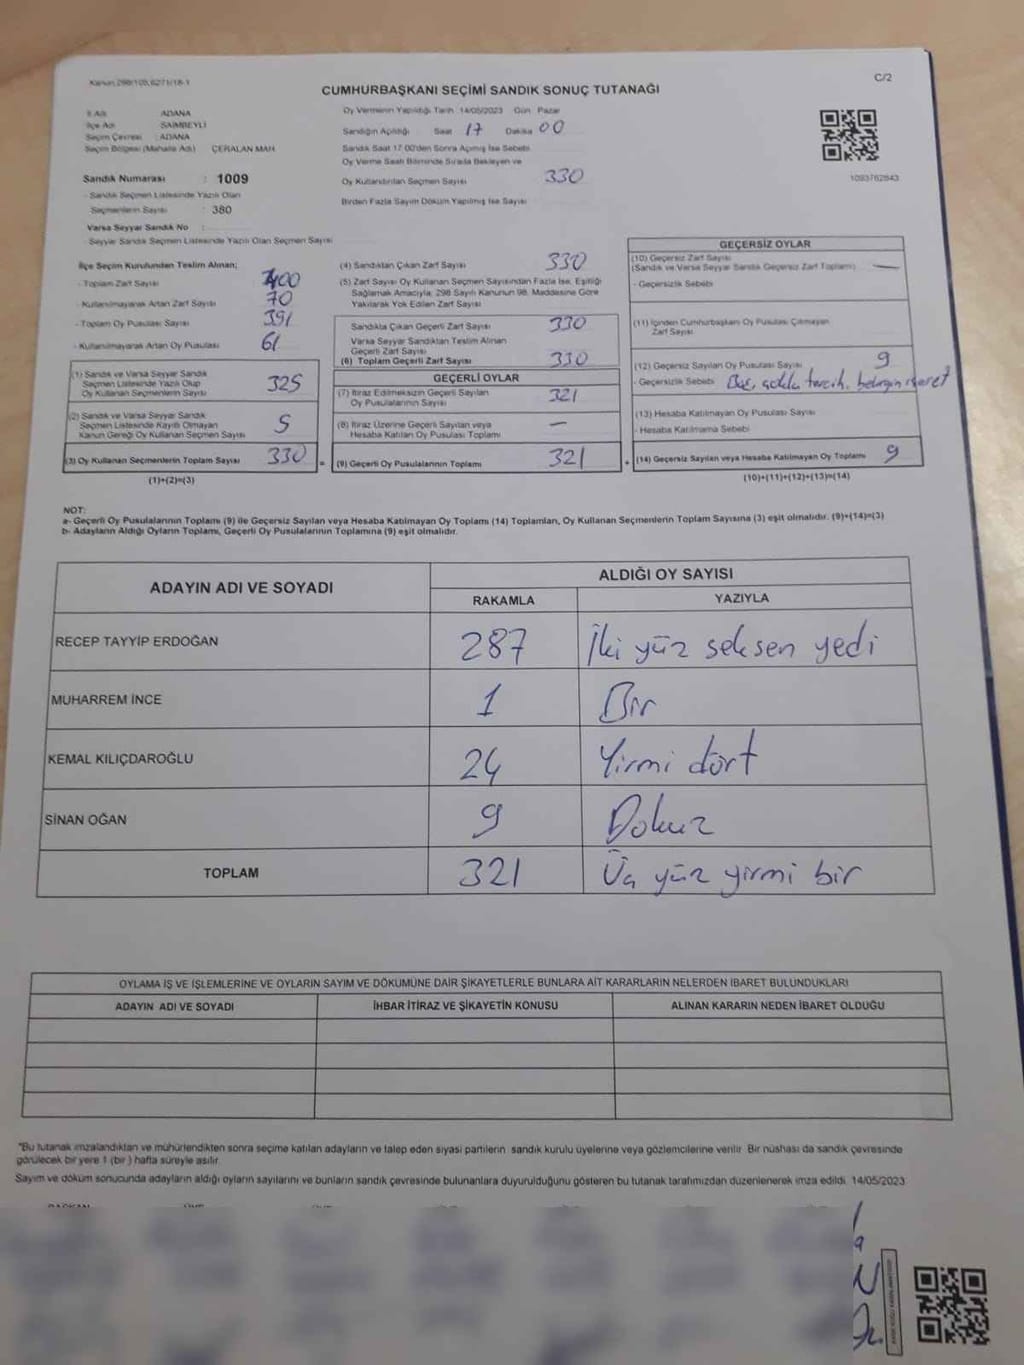 Kanun 298/105,6271/18-1
C/2
CUMHURBAŞKANI SEÇİMİ SANDIK SONUÇ TUTANAĞI
İl Adı ADANA
İlçe Adı SAİMBEYLİ
Seçim Çevresi : ADANA
Seçim Bölgesi (Mahalle Adı) ÇERALAN MAH.
Sandık Numarası : 1009
- Sandık Seçmen Listesinde Yazılı Olan
Seçmenlerin Sayısı : 380
Varsa Seyyar Sandık No :
- Seyyar Sandık Seçmen Listesinde Yazılı Olan Seçmen Sayısı
Oy Vermenin Yapıldığı Tarih :14/05/2023 Gün: Pazar
Sandığın Açıldığı Saat 17 Dakika 00
Sandık Saat 17:00'den Sonra Açılmış İse Sebebi
Oy Verme Saati Bitiminde Sırada Bekleyen ve
Oy Kullandırılan Seçmen Sayısı 330
Birden Fazla Sayım Döküm Yapılmış İse Sayısı
1093762843
İlçe Seçim Kurulundan Teslim Alınan;
- Toplam Zarf Sayısı 400
- Kullanılmayarak Artan Zarf Sayısı 70
- Toplam Oy Pusulası Sayısı 391
- Kullanılmayarak Artan Oy Pusulası 61
(1) Sandık ve Varsa Seyyar Sandık
Seçmen Listesinde Yazılı Olup
Oy Kullanan Seçmenlerin Sayısı 325
(2) Sandık ve Varsa Seyyar Sandık
Seçmen Listesinde Kayıtlı Olmayan
Kanun Gereği Oy Kullanan Seçmen Sayısı 5
(3) Oy Kullanan Seçmenlerin Toplam Sayısı 330 =
(1)+(2)=(3)
(4) Sandıktan Çıkan Zarf Sayısı 330
(5) Zarf Sayısı Oy Kullanan Seçmen Sayısından Fazla İse, Eşitliği
Sağlamak Amacıyla, 298 Sayılı Kanunun 98. Maddesine Göre
Yakılarak Yok Edilen Zarf Sayısı
Sandıkta Çıkan Geçerli Zarf Sayısı 330
Varsa Seyyar Sandıktan Teslim Alınan
Geçerli Zarf Sayısı
(6) Toplam Geçerli Zarf Sayısı 330
GEÇERLİ OYLAR
(7) İtiraz Edilmeksizin Geçerli Sayılan
Oy Pusulalarının Sayısı 321
(8) İtiraz Üzerine Geçerli Sayılan veya
Hesaba Katılan Oy Pusulası Toplamı —
(9) Geçerli Oy Pusulalarının Toplamı 321 +
GEÇERSİZ OYLAR
(10) Geçersiz Zarf Sayısı
(Sandık ve Varsa Seyyar Sandık Geçersiz Zarf Toplamı) —
- Geçersizlik Sebebi
(11) İçinden Cumhurbaşkanı Oy Pusulası Çıkmayan
Zarf Sayısı
(12) Geçersiz Sayılan Oy Pusulası Sayısı 9
- Geçersizlik Sebebi Boş, çoklu tercih, belirgin işaret
(13) Hesaba Katılmayan Oy Pusulası Sayısı
- Hesaba Katılmama Sebebi
(14) Geçersiz Sayılan veya Hesaba Katılmayan Oy Toplamı 9
(10)+(11)+(12)+(13)=(14)
NOT:
a- Geçerli Oy Pusulalarının Toplamı (9) ile Geçersiz Sayılan veya Hesaba Katılmayan Oy Toplamı (14) Toplamları, Oy Kullanan Seçmenlerin Toplam Sayısına (3) eşit olmalıdır. (9)+(14)=(3)
b- Adayların Aldığı Oyların Toplamı, Geçerli Oy Pusulalarının Toplamına (9) eşit olmalıdır.
ADAYIN ADI VE SOYADI ALDIĞI OY SAYISI
RAKAMLA YAZIYLA
RECEP TAYYİP ERDOĞAN 287 İki yüz seksen yedi
MUHARREM İNCE 1 Bir
KEMAL KILIÇDAROĞLU 24 Yirmi dört
SİNAN OĞAN 9 Dokuz
TOPLAM 321 Üç yüz yirmi bir
OYLAMA İŞ VE İŞLEMLERİNE VE OYLARIN SAYIM VE DÖKÜMÜNE DAİR ŞİKAYETLERLE BUNLARA AİT KARARLARIN NELERDEN İBARET BULUNDUKLARI
ADAYIN ADI VE SOYADI İHBAR İTİRAZ VE ŞİKAYETİN KONUSU ALINAN KARARIN NEDEN İBARET OLDUĞU
*Bu tutanak imzalandıktan ve mühürlendikten sonra seçime katılan adayların ve talep eden siyasi partilerin sandık kurulu üyelerine veya gözlemcilerine verilir. Bir nüshası da sandık çevresinde
görülecek bir yere 1 (bir ) hafta süreyle asılır.
Sayım ve döküm sonucunda adayların aldığı oyların sayılarını ve bunların sandık çevresinde bulunanlara duyurulduğunu gösteren bu tutanak tarafımızdan düzenlenerek imza edildi. 14/05/2023